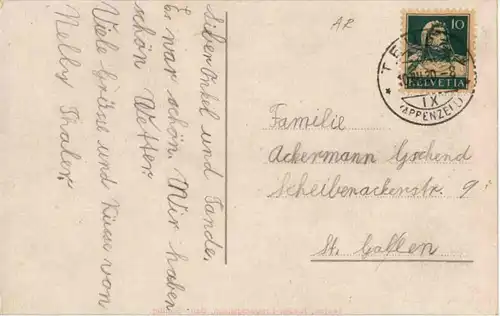 Lieber Onkel und Tande.
Es war schön. Wir haben
schön Wetter
Viele Grüsse und Küsse von
Nelly Thaler.
AR
10
HELVETIA
IX
(APPENZELL)
Familie
Ackermann Gschend
Scheibenackerstr. 9
St. Gallen